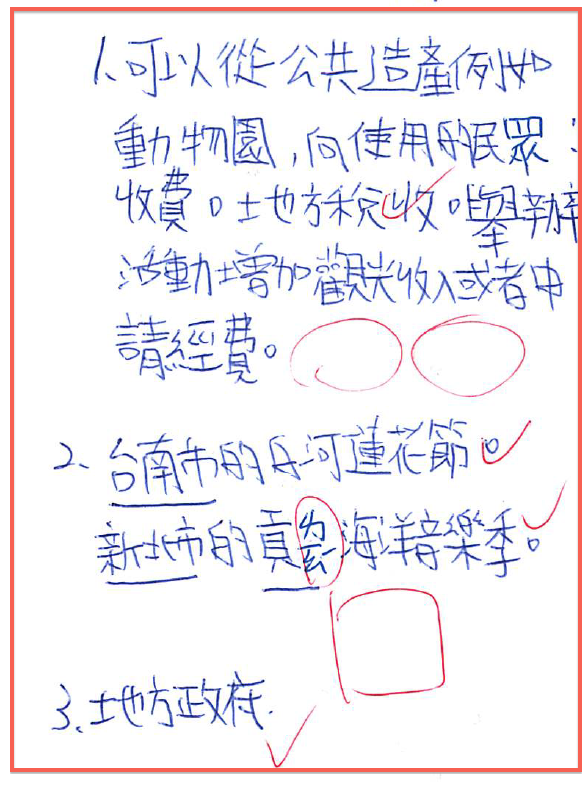 1、可以從公共造產例如
動物園,向使用的民眾:
收費。土地方稅收。舉辦
活動增加觀光收入或者申
請經費。
2、台南市的白河蓮花節。
新北市的貢寮海洋音樂季。
3、地方政府.